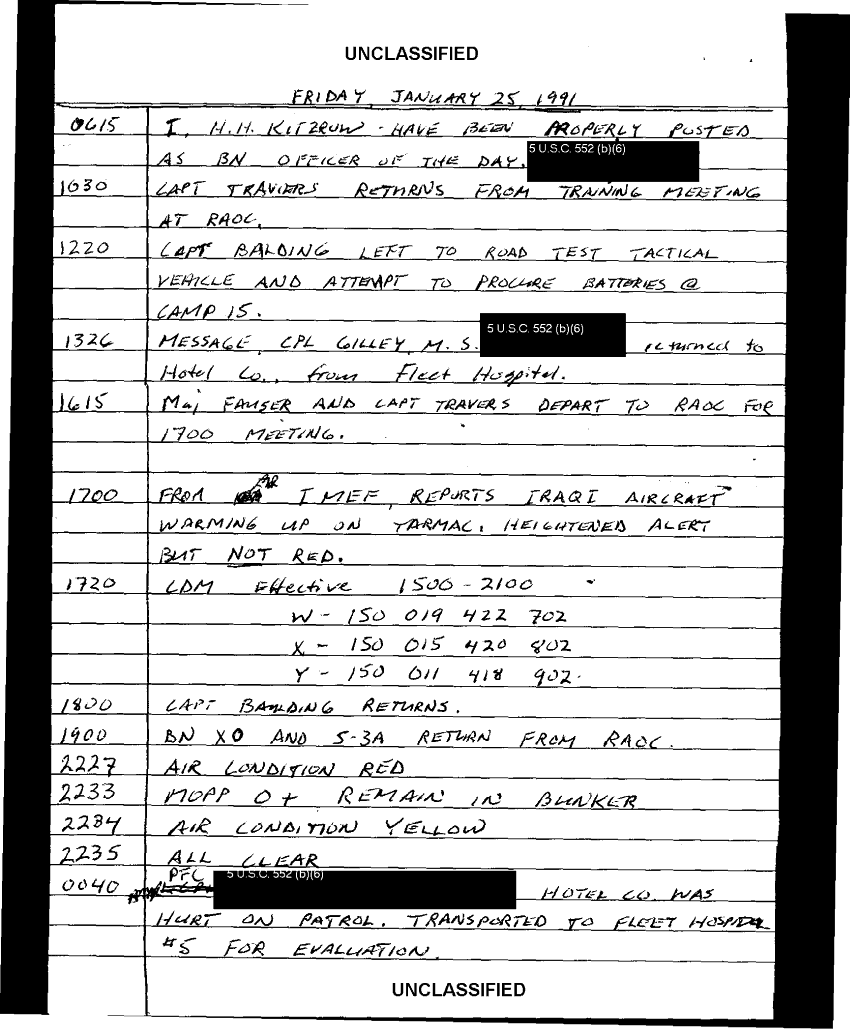 UNCLASSIFIED
FRIDAY, JANUARY 25, 1991
0615 I, H.H. KITZROW - HAVE BEEN PROPERLY POSTED
AS BN OFFICER OF THE DAY. 5 U.S.C. 552 (b)(6)
1030 CAPT TRAVIERS RETURNS FROM TRAINING MEETING
AT RAOC.
1220 CAPT BALDING LEFT TO ROAD TEST TACTICAL
VEHICLE AND ATTEMPT TO PROCURE BATTERIES @
CAMP 15.
1326 MESSAGE, CPL GILLEY, M. S. 5 U.S.C. 552 (b)(6) returned to
Hotel Co., from Fleet Hospital.
1615 Maj FAUSER AND CAPT TRAVERS DEPART TO RAOC FOR
1700 MEETING.
1700 FROM I MEF, REPORTS IRAQI AIRCRAFT
WARMING UP ON TARMAC. HEIGHTENED ALERT
BUT NOT RED.
1720 CDM Effective 1500 - 2100
W - 150 019 422 702
X - 150 015 420 802
Y - 150 011 418 902.
1800 CAPT BALDING RETURNS.
1900 BN XO AND S-3A RETURN FROM RAOC.
2227 AIR CONDITION RED
2233 MOPP 0 + REMAIN IN BUNKER
2234 AIR CONDITION YELLOW
2235 ALL CLEAR
0040 PFC 5 U.S.C. 552 (b)(6) HOTEL CO. WAS
HURT ON PATROL. TRANSPORTED TO FLEET HOSPITAL
#5 FOR EVALUATION.
UNCLASSIFIED